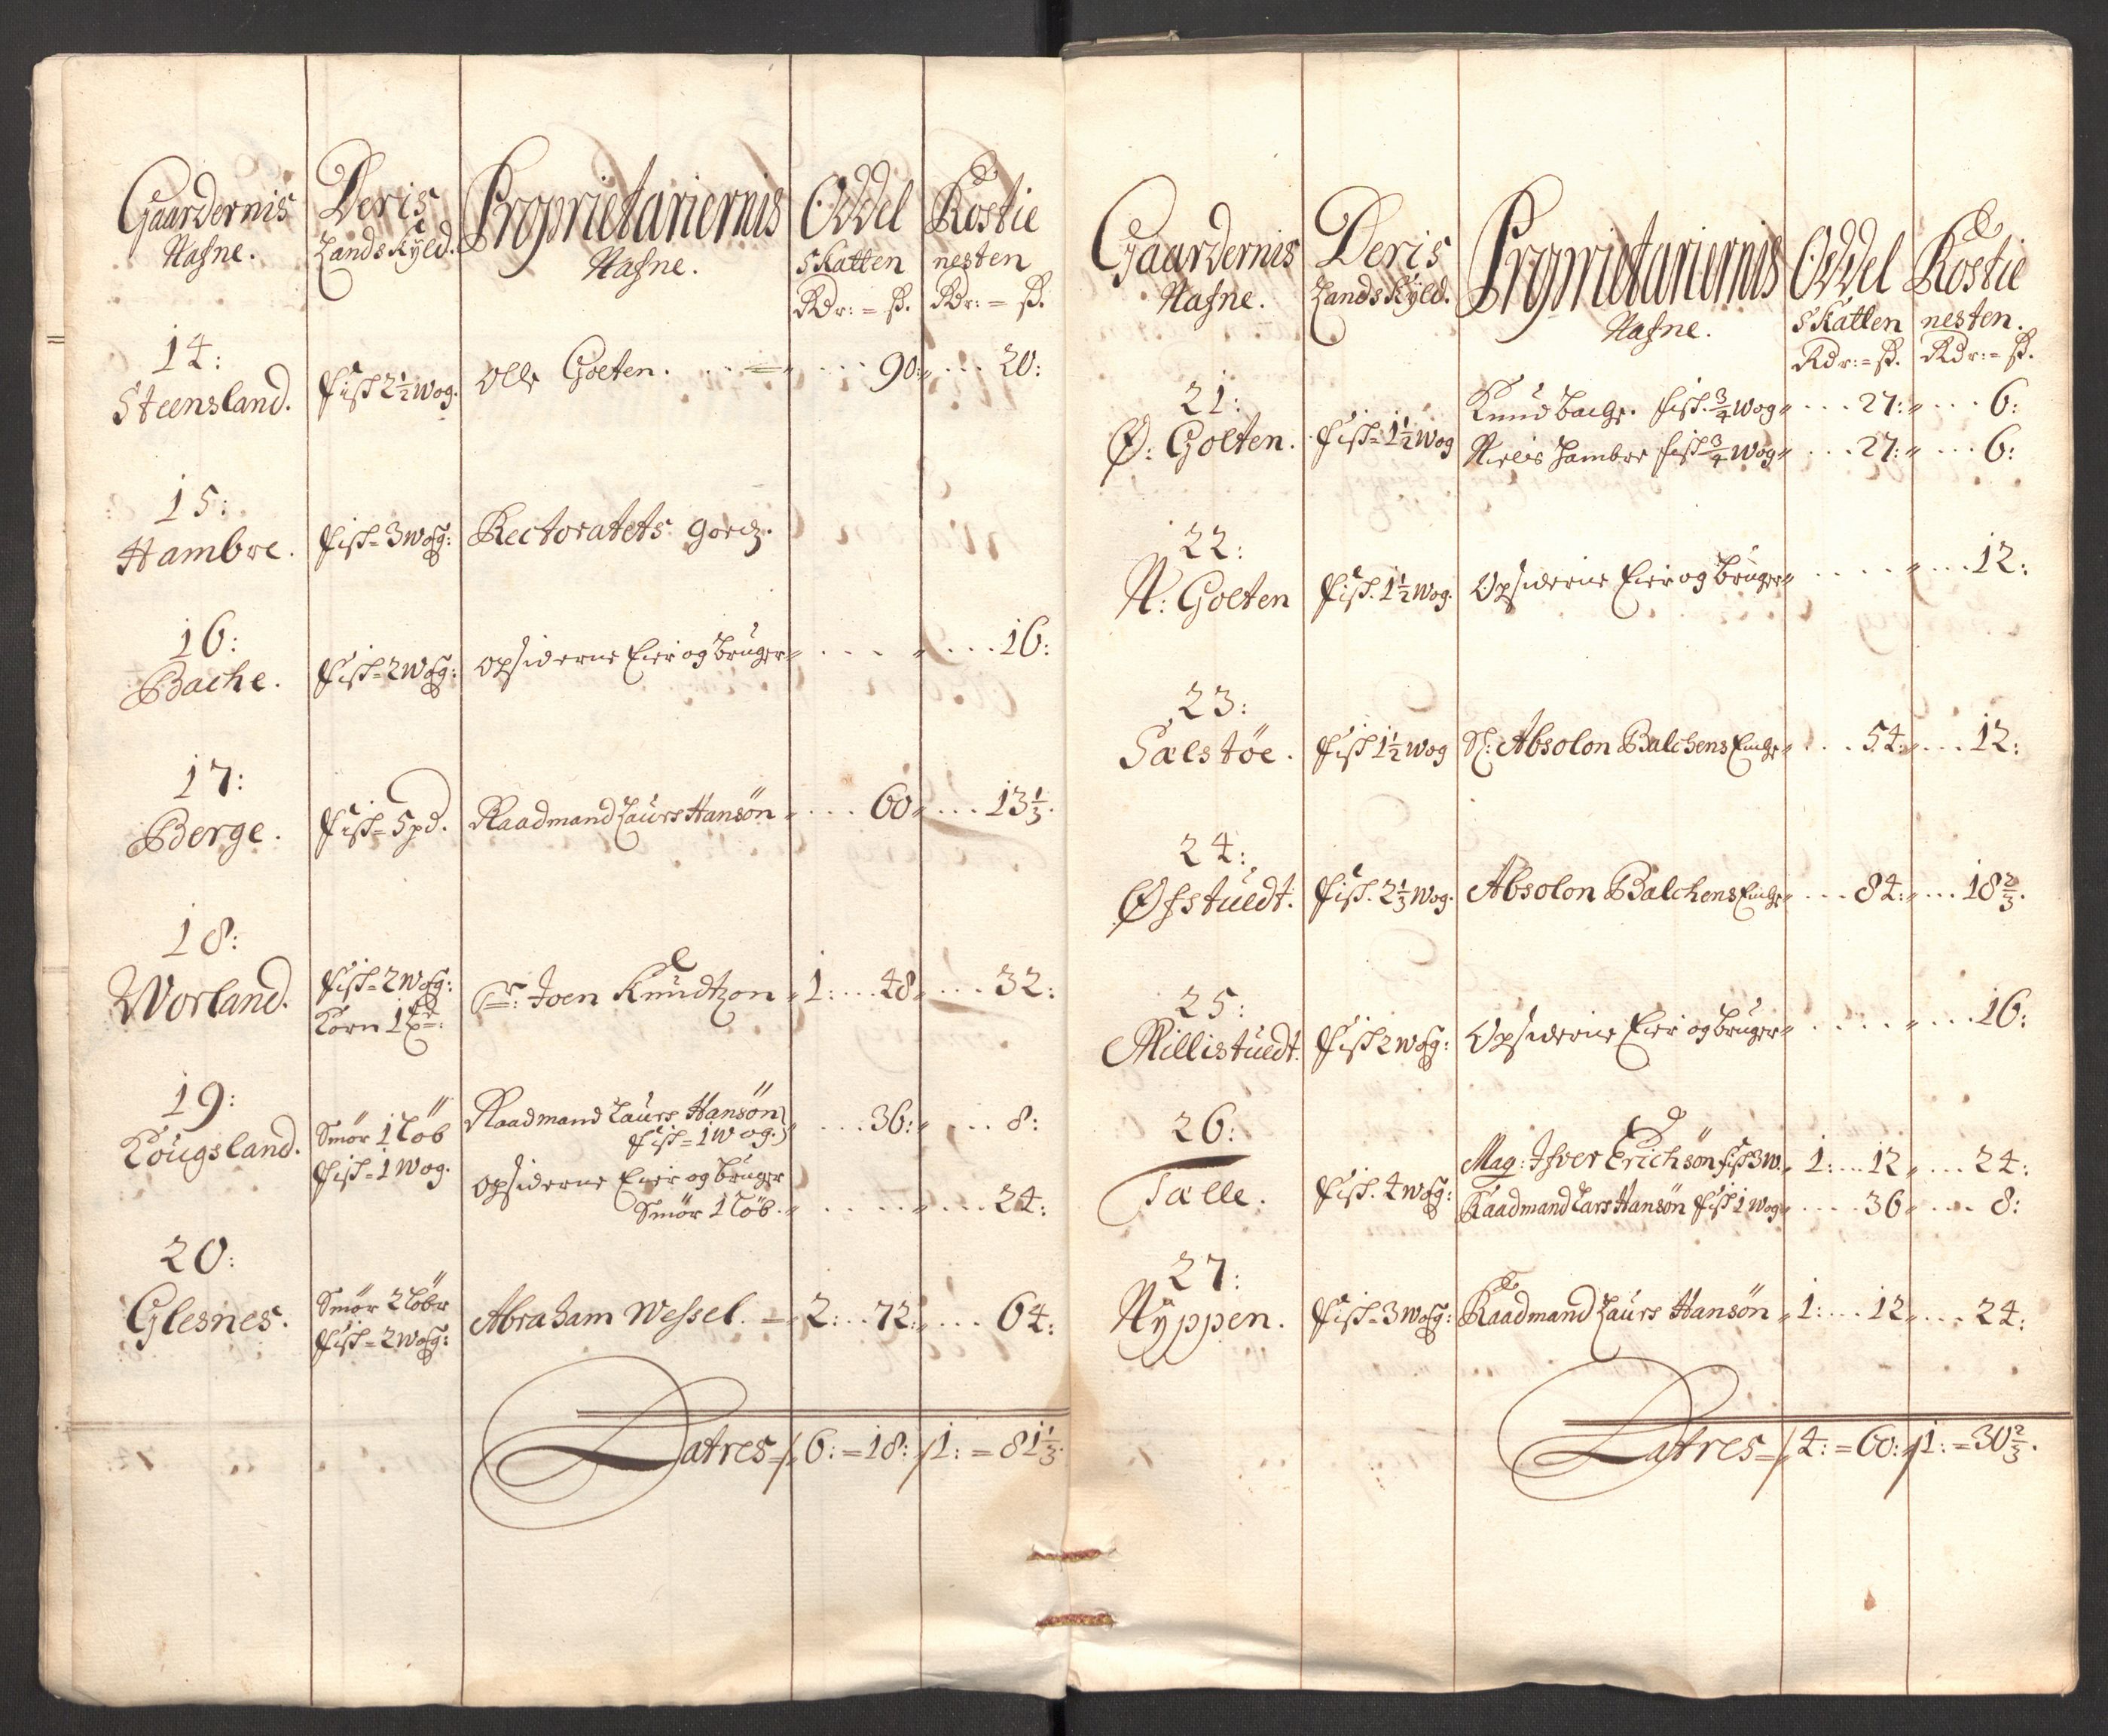 Gaardernis Nafne.
Deris Landskyld.
Proprietariernis Nafne.
Oddel skatten Rdr: = ß.
Rostie nesten Rdr: = ß.
14:
Steensland. Fisk 2½ wog. Olle Golten. 90: 20:
15:
Hambre. Fisk= 3 wog: Rectoratets godz.
16:
Bache. Fisk= 2 wog: opsiderne Eier og bruger 16:
17:
Berge. Fisk= 5 pd. Raadmand Laurs Hansøn 60 13⅓.
18:
Worland. Fisk= 2 wog: Sr: Joen Knudtzon 1: 48 32:
Korn 1 pd:
19:
Kougsland. Smør 1 løb Raadmand Laurs Hansøn
Fisk= 1 wog. 36: 8:
Fisk= 1 wog. opsiderne Eier og bruger
Smør 1 løb. 24:
20:
Glesnes. Smør 2 løber
Fisk= 2 wog: Abraham Wessel. 2: 72: 64:
Latres 6: = 18: 1: = 81⅓.
Gaardernis Nafne.
Deris Landskyld.
Proprietariernis Nafne.
Oddel skatten Rdr: = ß.
Rostie nesten. Rdr: = ß.
21:
Ø: Golten. Fisk= 1½ wog Knud bache. fisk. ¾ wog 27: 6:
Niels Hambre fisk ¾ wog 27: 6:
22:
N: Golten Fisk. 1½ wog. Opsiderne Eier og bruger 12:
23:
Sælstøe. Fisk 1½ wog Sl: Absolon Balchens Encke 54: 12:
24:
Øfstuedt. Fisk. 2⅓ wog. Absolon Balchens Encke 84: 18⅔.
25:
Millistuedt. Fisk 2 wog: Opsiderne Eier og bruger 16:
26:
Tælle. Fisk. 4 wog: Mag: Ifver Erichsøn fisk 3 w. 1: 12 24:
Raadmand Lars Hansøn Fisk 1 wog 36 8:
27:
Nÿppen. Fisk= 3 wog: Raadmand Laurs Hansøn 1: 12 24:
Latres 4: = 60: 1: = 30⅔.